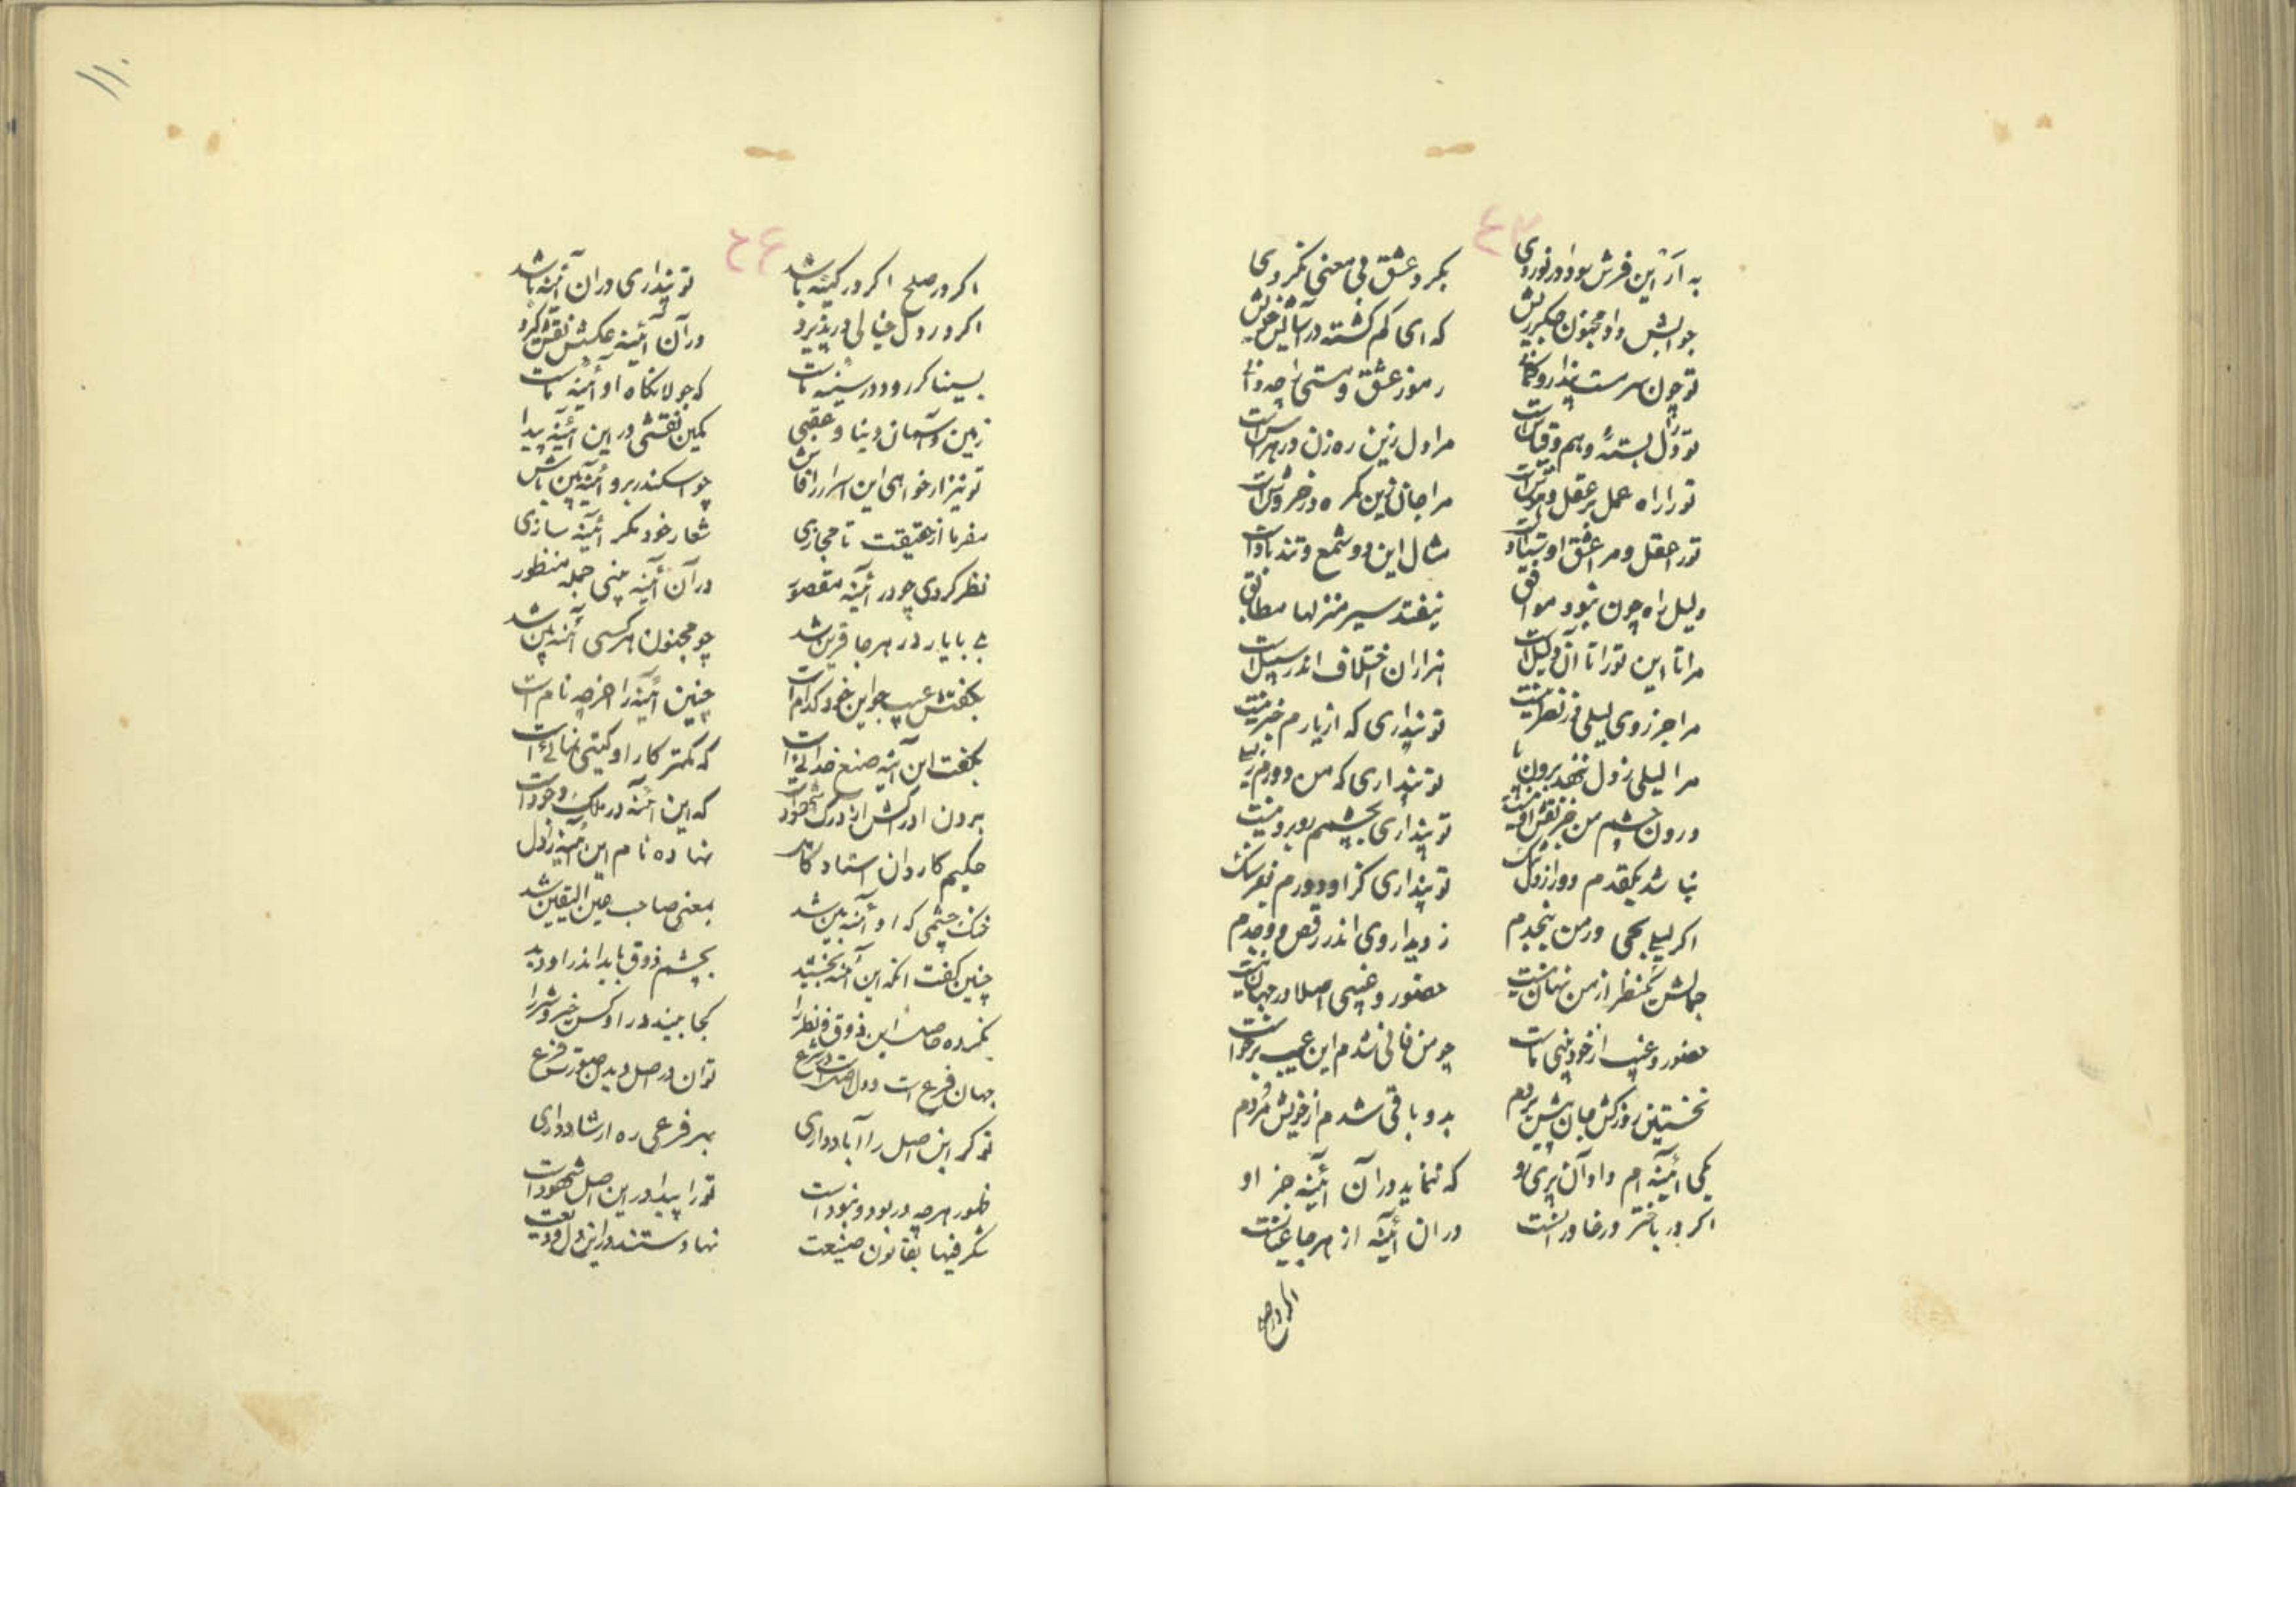 ٤٣
به از این فرش سودا در نوردی بگرد عشق بی معنی نگردی
جوابش داد مجنون جگرریش که ای گم گشته در آسایش خویش
تو چون سرمست پندار و رموز عشق و مستی را چه دانی
تو را دل بستهٔ وهم و قیاس است مرا دل زین ره زن در هراس است
تو را راه عمل بر عقل و مرا جان زین گره در خروش است
تو را عقل و مرا عشق اوستاد است مثال این دو شمع و تند باد است
دلیل راه چون نبود موافق نیفتد سیر منزلها مطابق
مرا تا این تو را تا آن دلیل است هزاران اختلاف اندر سبیل است
مرا جز روی لیلی در نظر نیست تو پنداری که از یارم خبر نیست
مرا لیلی ز دل ننهد برون پا تو پنداری که من دورم ز لیلی
درون چشم من جز نقش او نیست تو پنداری بچشمم روبرو نیست
نباشد یکقدم دور از دل تو پنداری کز او دورم بفرسنگ
اگر لیلی بحی ور من بنجدم ز دیدار وی اندر رقص و وجدم
جمالش یکنظر از من نهان نیست حضور و غیبی اصلا در جهان نیست
حضور و غیب از خودبینی ماست چو من فانی شدم این عیب برخواست
نخستین روز کش جان پیش بردم بدو باقی شدم از خویش مردم
یکی آئینه ام داد آن پری رو که ننماید در آن آئینه جز او
اگر در باختر ور خاور است در ان آئینه از هر جا عیانست
اگر در صلح
١١٠
٤٤
اگر در صلح اگر در کینه باشد تو پنداری در ان آئینه باشد
اگر در دل خیالی در پذیرد در آن آئینه عکسش نقش گیرد
بسینا گر رود در سینه ماست که جولانگاه او آئینه ماست
زمین و آسمان دینا و عقبی یکین نقشی در این آئینه پیدا
تو نیز ار خواهی این اسرار را فاش چو اسکندر برو آئینه بین باش
سفر تا از حقیقت تا مجازی شعار خود مگر آئینه سازی
نظر کردی چو در آئینه مقصور در آن آئینه بینی جمله منظور
بی با یار در هر جا قرین شد چو مجنون هر کسی آئینه بین شد
بگفتش عیب جو این خود کدام است چنین آئینه را اخر چه نام است
بگفت این آئینه صنع خدائی است که کمتر کار او گیتی نمائی است
برون ادراکش از درک شهود است که این آئینه در ملک وجود است
حکیم کاردان استاد کامل نهاده نام این آئینه را دل
خنک چشمی که او آئینه بین شد بمعنی صاحب عین الیقین شد
چنین گفت انکه این آئینه بخشید بچشم ذوق باید اندر او دید
نکرده حاصل این ذوق و نظر را کجا بیند در او کس خیر و شر را
جهان فرع است و دل اصل است در شرع توان در اصل دیدن صورت فرع
تو گر این اصل را آباد داری بهر فرعی ره ارشاد داری
ظهور هر چه در بود و نبود است تو را پیدا در این اصل شهود است
شگرفیها بقانون صنیعت نهادستند در این دل ودیعت